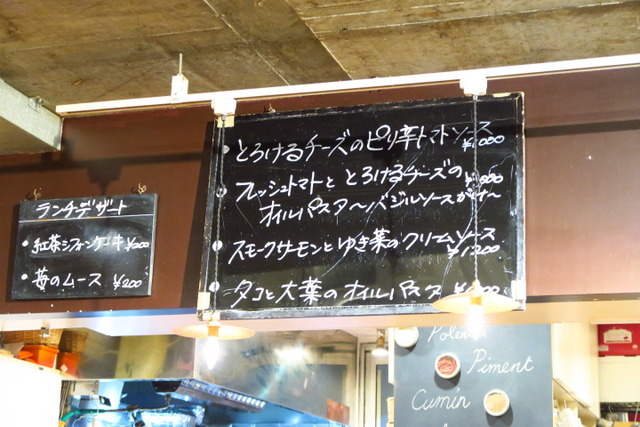 ランチデザート
・紅茶シフォンケーキ ¥200
・苺のムース ¥200
・とろけるチーズのピリ辛トマトソース
¥1000
・フレッシュトマトと とろけるチーズの
オイルパスタ 〜バジルソースがけ〜
・スモークサーモンとゆき菜のクリームソース
¥1200
・タコと大葉のオイルパスタ
Piment
Cumin